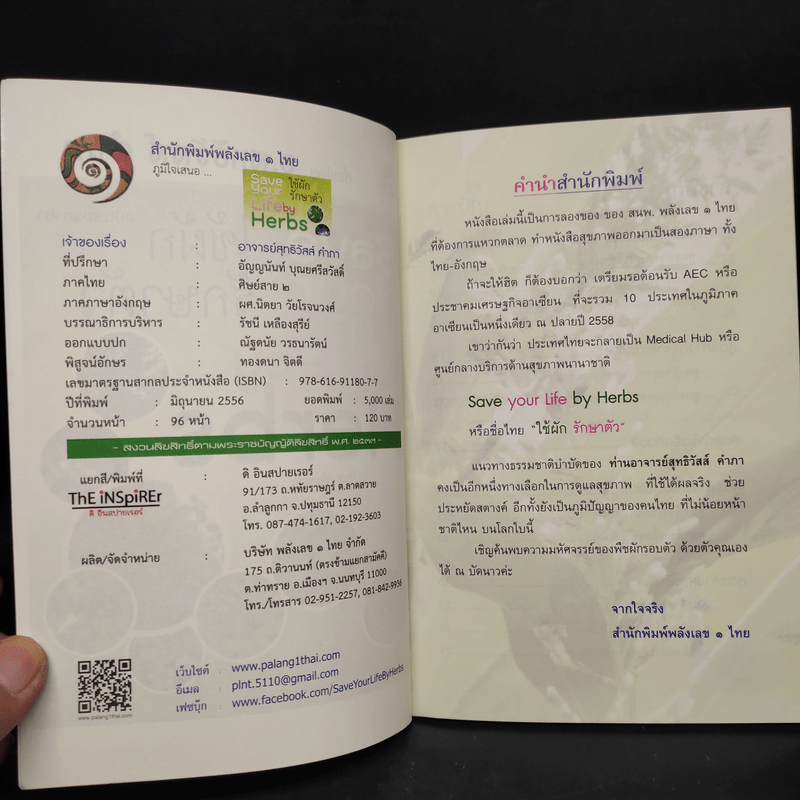 สำนักพิมพ์พลังเลข ๑ ไทย
ภูมิใจเสนอ ...
Save ใช้ผัก
Your รักษาตัว
Life by
Herbs
เจ้าของเรื่อง : อาจารย์สุทธิวัสส์ คำภา
ที่ปรึกษา : อัญญนันท์ บุณยศรีสวัสดิ์
ภาคไทย : ศิษย์สาย ๒
ภาคภาษาอังกฤษ : ผศ.นิตยา วัยโรจนวงศ์
บรรณาธิการบริหาร : รัชนี เหลืองสุรีย์
ออกแบบปก : ณัฐดนัย วรธนารัตน์
พิสูจน์อักษร : ทองดนา จิตดี
เลขมาตรฐานสากลประจำหนังสือ (ISBN) : 978-616-91180-7-7
ปีที่พิมพ์ : มิถุนายน 2556 ยอดพิมพ์ : 5,000 เล่ม
จำนวนหน้า : 96 หน้า ราคา : 120 บาท
- สงวนลิขสิทธิ์ตามพระราชบัญญัติลิขสิทธิ์ พ.ศ. ๒๕๓๗ -
แยกสี/พิมพ์ที่ : ดิ อินสปายเรอร์
ThE iNSpiREr
ดิ อินสปายเรอร์
91/173 ถ.หทัยราษฎร์ ต.ลาดสวาย
อ.ลำลูกกา จ.ปทุมธานี 12150
โทร. 087-474-1617, 02-192-3603
ผลิต/จัดจำหน่าย : บริษัท พลังเลข ๑ ไทย จำกัด
175 ถ.ติวานนท์ (ตรงข้ามแยกสามัคคี)
ต.ท่าทราย อ.เมืองฯ จ.นนทบุรี 11000
โทร./โทรสาร 02-951-2257, 081-842-9936
เว็บไซต์ : www.palang1thai.com
อีเมล : plnt.5110@gmail.com
เฟซบุ๊ก : www.facebook.com/SaveYourLifeByHerbs
www.palang1thai.com
คำนำสำนักพิมพ์
หนังสือเล่มนี้เป็นการลองของ ของ สนพ. พลังเลข ๑ ไทย
ที่ต้องการแหวกตลาด ทำหนังสือสุขภาพออกมาเป็นสองภาษา ทั้ง
ไทย-อังกฤษ
ถ้าจะให้ฮิต ก็ต้องบอกว่า เตรียมรอต้อนรับ AEC หรือ
ประชาคมเศรษฐกิจอาเซียน ที่จะรวม 10 ประเทศในภูมิภาค
อาเซียนเป็นหนึ่งเดียว ณ ปลายปี 2558
เขาว่ากันว่า ประเทศไทยจะกลายเป็น Medical Hub หรือ
ศูนย์กลางบริการด้านสุขภาพนานาชาติ
Save your Life by Herbs
หรือชื่อไทย "ใช้ผัก รักษาตัว"
แนวทางธรรมชาติบำบัดของ ท่านอาจารย์สุทธิวัสส์ คำภา
คงเป็นอีกหนึ่งทางเลือกในการดูแลสุขภาพ ที่ใช้ได้ผลจริง ช่วย
ประหยัดสตางค์ อีกทั้งยังเป็นภูมิปัญญาของคนไทย ที่ไม่น้อยหน้า
ชาติไหน บนโลกใบนี้
เชิญค้นพบความมหัศจรรย์ของพืชผักรอบตัว ด้วยตัวคุณเอง
ได้ ณ บัดนาวค่ะ
จากใจจริง
สำนักพิมพ์พลังเลข ๑ ไทย